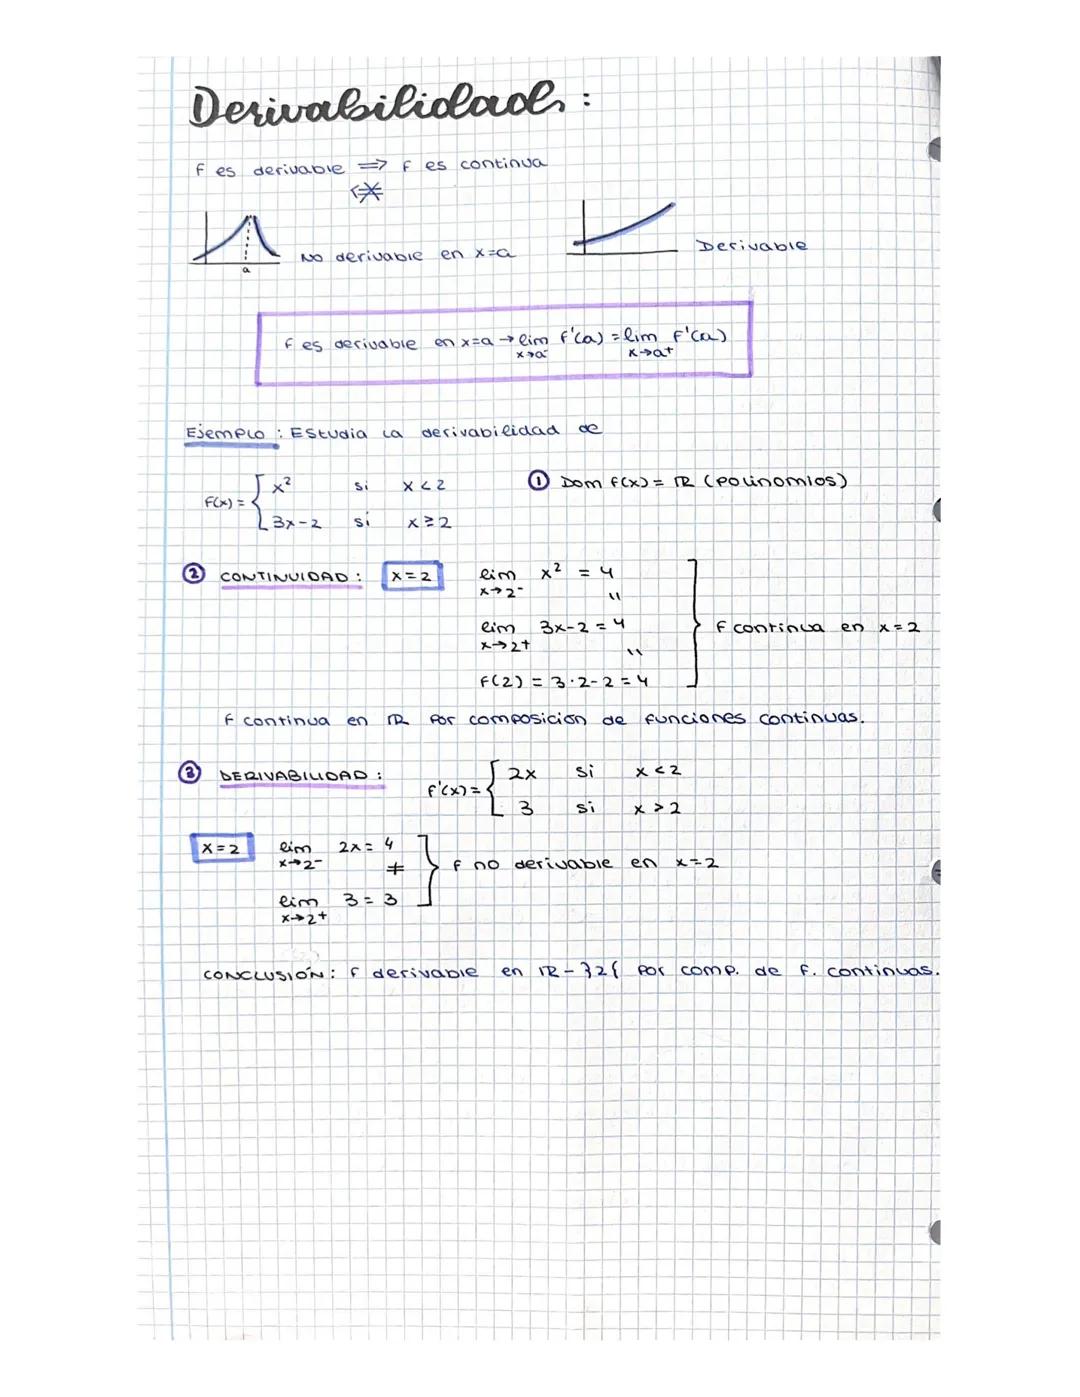 Derivabilidad:
f es derivable ⇒ f es continua
⇍
a
No derivable en x=a
Derivable
f es derivable en x=a → lim f'(a) = lim f'(a)
x→a⁻ x→a⁺
Ejemplo: Estudia la derivabilidad de
f(x) = { x² si x < 2
3x-2 si x ≥ 2
① Dom f(x) = ℝ (polinomios)
② CONTINUIDAD: x=2
lim x² = 4
x→2⁻ "
lim 3x-2 = 4
x→2⁺ "
f(2) = 3·2-2 = 4
f continua en x=2
f continua en ℝ por composición de funciones continuas.
③ DERIVABILIDAD:
f'(x) = { 2x si x < 2
3 si x > 2
x=2
lim 2x = 4
x→2⁻ ≠
lim 3 = 3
x→2⁺
f no derivable en x=2
CONCLUSIÓN: f derivable en ℝ-}2{ por comp. de f. continuas.